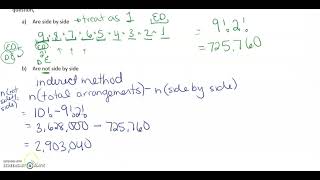 question,
a) Are side by side
treat as 1 ED
9·8·7·6·5·4·3·2·1
= 9!2!
ED
DE
= 725,760
b) Are not side by side
indirect method
n(not side by side)
n(total arrangements) - n(side by side)
= 10! - 9!2!
= 3,628,000 - 725,760
= 2,903,040